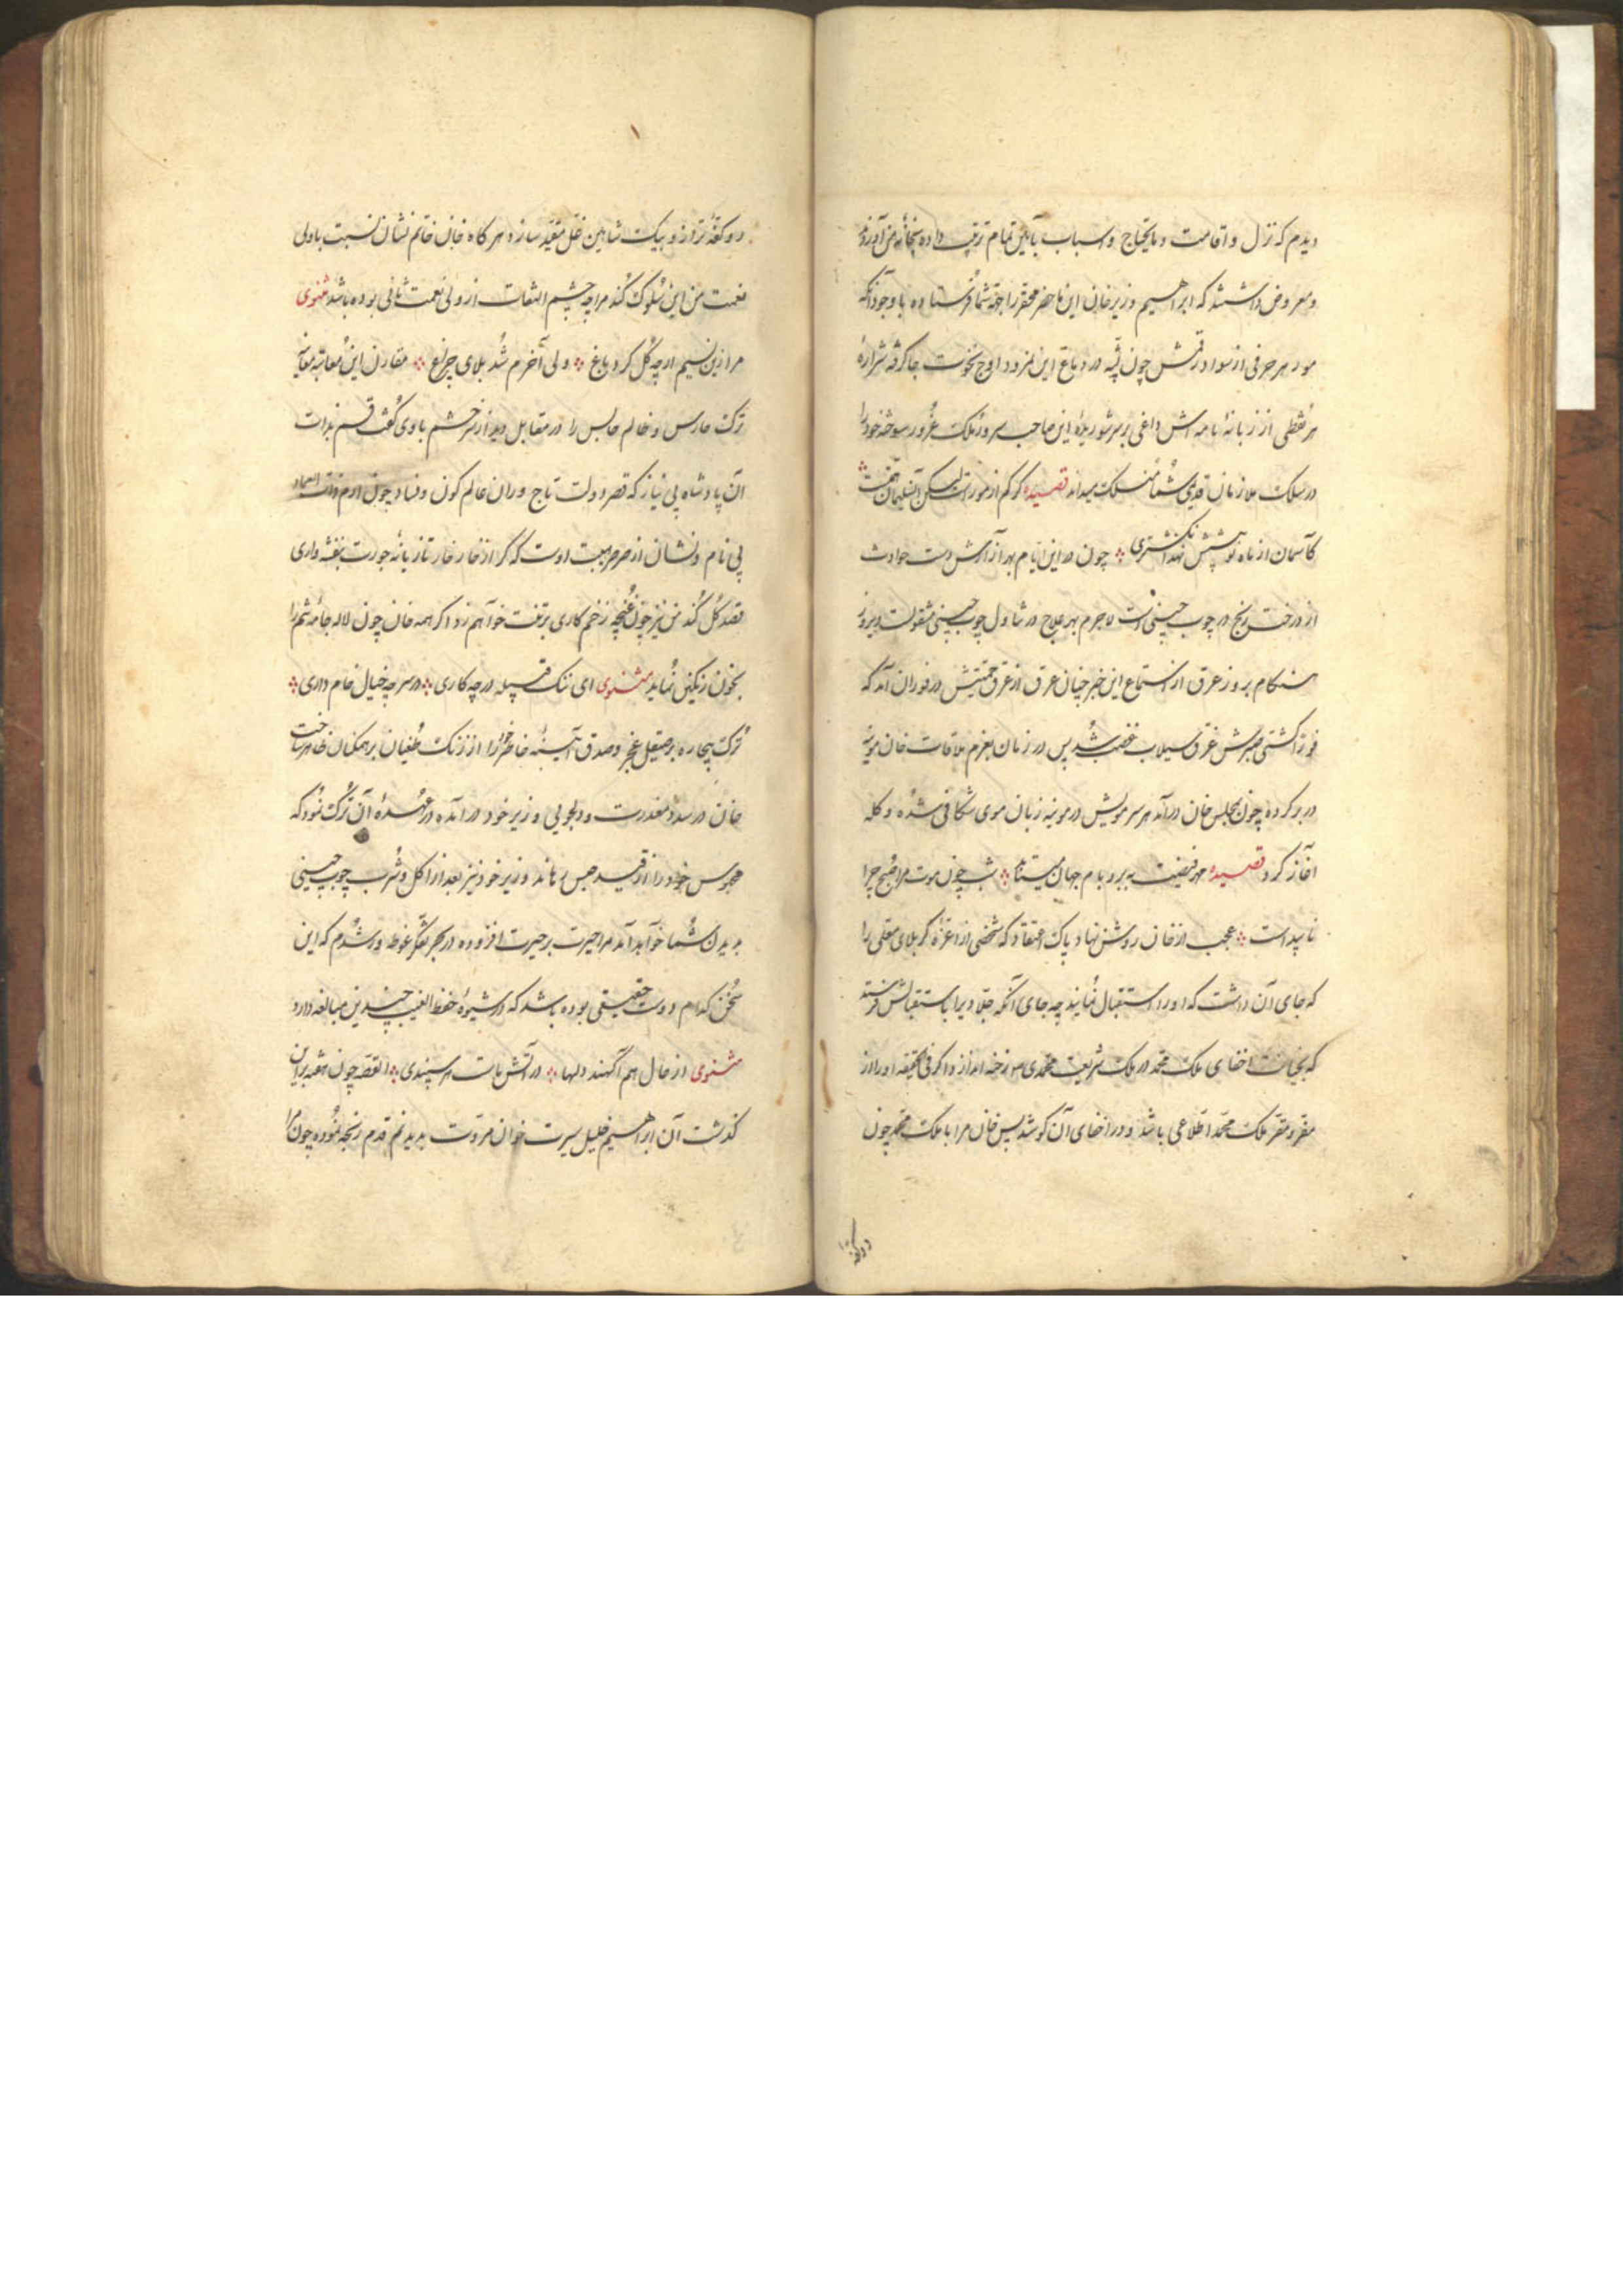 دیدم که نزل و اقامت و مایحتاج و اسباب بآیین تمام ترتیب داده بخانه من آوردند
و معروض داشتند که ابراهیم وزیر خان این ماحضر محقر را جهة شما فرستاده با وجود آنکه
مور هر حرفی از سواد رقمش چون پشه در دماغ این نمرود اوج نخوت جا گرفته شراره
هر نقطی از زبانهٔ نامه اش داغی بر سر شوریدهٔ این صاحب سرور ملک غرور سوخته خود را
در سلک ملازمان قدیمی شما منسلک میداند قصیده گر کم از مورست لیکن آن سلیمان حشمت
کآسمان از ماه نو پیشش نهد انگشتری چون در این ایام بهر از آرامش دست حوادث
از درخت رنج در چوب چینی است لاجرم بهر علاج در تناول چوب چینی مشغولست و بروز
هنگام بروز عرق از استماع این خبر چنان عرق از عرق حمیتش در فوران آمد که
فورا کشتی صبرش غرق سیلاب غضب شد پس در زمان بعزم ملاقات خان موینه
در بر کرده چون بمجلس خان درآمد هر سر مویش در موینه زبان موی شکافی شده و کله
آغاز کرد قصیده مهر فضیت به بر و بام جهان شب چون موت مرا صبح چرا
ناپیداست عجب از خان روشن نهاد پاک اعتقاد که شخصی از اعزهٔ کربلای معلی را
که جای آن داشت که او را استقبال نمایند چه جای آنکه جلاد برا باستقبالش فرستند
که بخیانت اخفای ملک محمد در ملک شریعت محمدی رخنه اندازد اگر فی الحقیقه او را از
مقر و مفر ملک محمد اطلاعی باشد و در اخفای آن کوشد پس خان مرا با ملک محمد چون
دو کفه
دو کفهٔ ترازو بیک شاهین عقل مقید سازد هرگاه خان خاتم نشان نسبت باولی
نعمت من این سلوک کند مرا چه چشم التفات از ولی نعمت ثانی بوده باشد مثنوی
مرا زین نسیم ار چه گل کرد باغ ولی آخرم شد بلای چراغ مقارن این معاتبه معاینه
ترک حارس و ظالم حابس را در مقابل دید از سر خشم با وی گفت قسم بذات
آن پادشاه بی نیاز که قصر دولت تاج وران عالم کون و فساد چون ارم ذات العماد
بی نام و نشان از صرصر هیبت اوست که گر از خار خار تازیانهٔ جورت بنفشه واری
قصد گل کند من نیز چون غنچه زخم کاری برتنت خواهم زد اگر همه خان چون لاله جامه شرم را
بخون رنگین نماید مثنوی ای ننگ قبیله در چه کاری در سر چه خیال خام داری
ترک بیچاره بر صیقل عجز و صدق آیینه خاطر خود را از زنگ طغیان بر همکنان ظاهر ساخت
خان در سدد معذرت و دلجویی وزیر خود درآمده در عهدهٔ آن ترک نمود که
محبوس خود را از قید حبس رهاند وزیر خود نیز بعد از اکل و شرب چوب چینی
بدیدن شما خواهد آمد مرا حیرت بر حیرت افزوده در بحر تفکر غوطه ور شدم که این
سخن کدام دوست حقیقی بوده باشد که در شیوهٔ حفظ الغیب چندین مبالغه دارد
مثنوی از حال هم آگهند دلها در آتش ماست هر سپندی القصه چون هفته برین
گذشت آن ابراهیم خلیل سیرت خوان مروت بدیدنم قدم رنجه نموده چون مرا